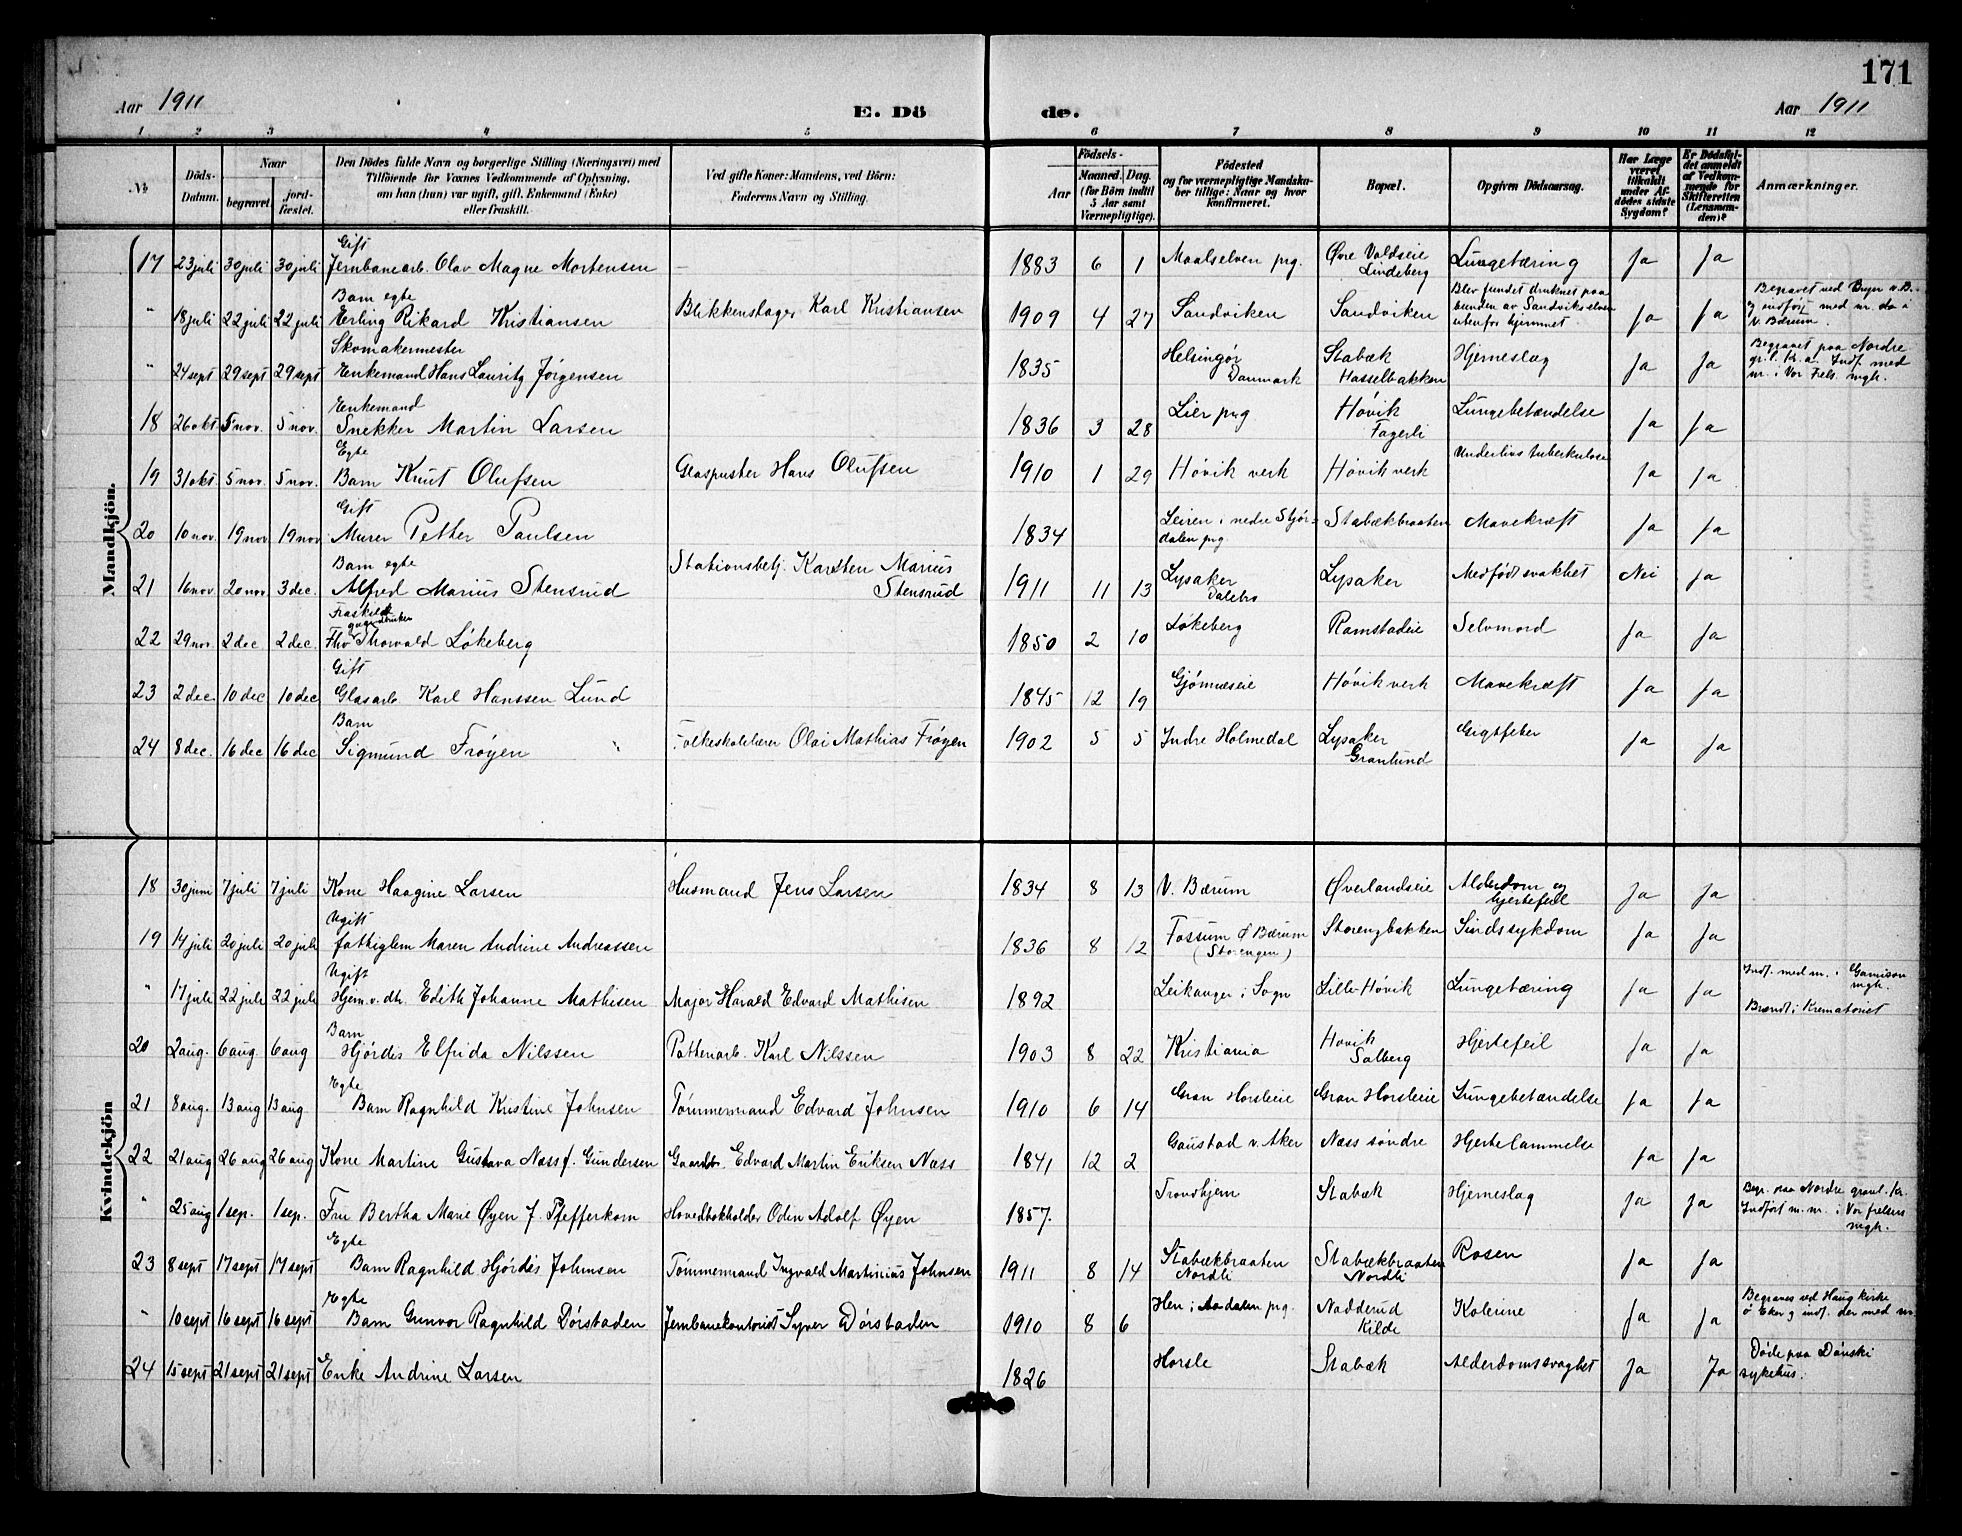 171
Aar 1911 E. Dö de. Aar 1911
1 2 3 4 5 6 7 8 9 10 11 12
No
Döds-Datum.
Naar
begravet.
jord-fæstet.
Den Dödes fulde Navn og borgerlige Stilling (Næringsvei) med
Tilföiende for Voxnes Vedkommende af Oplysning,
om han (hun) var ugift, gift, Enkemand (Enke)
eller fraskilt.
Ved gifte Koner: Mandens, ved Börn:
Faderens Navn og Stilling.
Födsels-
Aar
Maaned. Dag.
(for Börn indtil
5 Aar samt
Værnepligtige).
Födested
og for værnepligtige Mandska-
ber tillige: Naar og hvor
konfirmeret.
Bopæl.
Opgiven Dödsaarsag.
Har Læge
været
tilkaldt
under Af-
dödes sidste
Sygdom?
Er Dödsfal-
det anmeldt
af Vedkom-
mende for
Skifteretten
(Lensman-
den)?
Anmærkninger.
Mandkjön.
Gift
17 23 juli 30 juli 30 juli Jernbanearb. Olav Magne Mortensen — 1883 6 1 Maalselven prg. Øvre Voldseie Lungetæring Ja Ja
Lindeberg
Barn egte
" 18 juli 22 juli 22 juli Erling Rikard Kristiansen Blikkenslager Karl Kristiansen 1909 4 27 Sandviken Sandviken Blev fundet druknet paa
bunden av Sandvikselven
utenfor hjemmet. Ja Ja
Begravet ved Bryn v. B.
og indført med nr. da i
V. Bærum.
Skomakermester
" 24 sept 29 sept 29 sept Enkemand Hans Lauritz Jørgensen 1835 Helsingør Stabæk Hjerneslag Ja Ja
Danmark Hasselbakken
Begravet paa Nordre
gr.l. K.a. Indf. med
nr. i Vor Frels. mgh.
Enkemand
18 26 okt. 5 nov. 5 nov. Snekker Martin Larsen 1836 3 28 Lier prg Høvik Lungebetændelse Ja Ja
Fagerli
Egte
19 31 okt 5 nov. 5 nov. Barn Knut Olufsen Glaspuster Hans Olufsen 1910 1 29 Høvik verk Høvik verk Underlivstuberkulose Ja Ja
Gift
20 10 nov. 19 nov 19 nov Murer Petter Paulsen 1834 Leiren i nedre Stjør- Stabækbraaten Mavekræft Ja Ja
dalen prg
Barn egte
21 16 nov. 20 nov. 3 dec. Alfred Marius Stensrud Stationsbetj. Karsten Marius
Stensrud 1911 11 13 Lysaker Lysaker Medfødt svakhet Nei Ja
Dalebo
Fraskilt
22 29 nov. 2 dec 2 dec. Fhv Thorvald Løkeberg 1850 2 10 Løkeberg Ramstadeie Selvmord Ja Ja
Gift
23 2 dec. 10 dec 10 dec Glasarb Karl Hanssen Lund 1845 12 19 Gjønneseie Høvik verk Mavekræft Ja Ja
Barn
24 8 dec. 16 dec 16 dec Sigmund Frøyen " Folkeskolelærer Olai Mathias Frøyen 1902 5 5 Indre Holmedal Lysaker Gigtfeber Ja Ja
Granlund
Kvindekjön
18 30 juni 7 juli 7 juli Kone Haagine Larsen Husmand Jens Larsen 1834 8 13 V. Bærum Øverlandseie Alderdom og Ja Ja
hjertefeil
Ugift
19 14 juli 20 juli 20 juli fattiglem Maren Andrine Andreassen 1836 8 12 Fossum Ø Bærum Storengbakken Sindssykdom Ja Ja
(Storengen)
Ugift
" 17 juli 22 juli 22 juli Hjem.v. dtr. Edith Johanne Mathisen Major Harald Edvard Mathisen 1892 Leikanger i Sogn Lille-Høvik Lungetæring Ja Ja
Indf. med nr. i Garnison
mgh.
Brændt i Krematoriet
Barn
20 2 aug. 6 aug 6 aug Hjørdis Elfrida Nilssen Pottenarb. Karl Nilssen 1903 8 22 Kristiania Høvik Hjertefeil Ja Ja
Solberg
Egte
21 8 aug. 13 aug 13 aug. Barn Ragnhild Kristine Johnsen Tømmermand Edvard Johnsen 1910 6 14 Gran Horsleie Gran Horsleie Lungebetændelse Ja Ja
22 21 aug 26 aug 26 aug Kone Martine Gustava Næss f. Gundersen Gaardbr. Edvard Martin Eriksen Næss 1841 12 2 Gaustad v. Aker Næss søndre Hjertelammelse Ja Ja
" 25 aug 1 sep. 1 sep. Fru Bertha Marie Øyen f. Pfefferkorn Hovedbokholder Oden Adolf Øyen 1857. Trondhjem Stabæk Hjerneslag Ja Ja
Begr. paa Nordre gravl. Kr.
Indført m. nr. i Vor frelsers
mgh.
Egte
23 8 sept 17 sept 17 sept Barn Ragnhild Hjørdis Johnsen Tømmermand Ingvald Martinius Johnsen 1911 8 14 Stabækbraaten Stabækbraaten Rosen Ja Ja
Nordli Nordli
Egte
" 10 sept 16 sept 16 sept Barn Gunvor Ragnhild Dørstaden Jernbanekontorist Syver Dørstaden 1910 8 6 Hen i Aadalen prg. Nadderud Kolerine Ja Ja
Kilde
Begraves ved Haug kirke
ø Eker og indf. der med nr.
24 15 sept 21 sept 21 sept Enke Andrine Larsen 1826 Horsle Stabæk Alderdomssvaghet Ja Ja
Døde paa Dønski
sykehus.